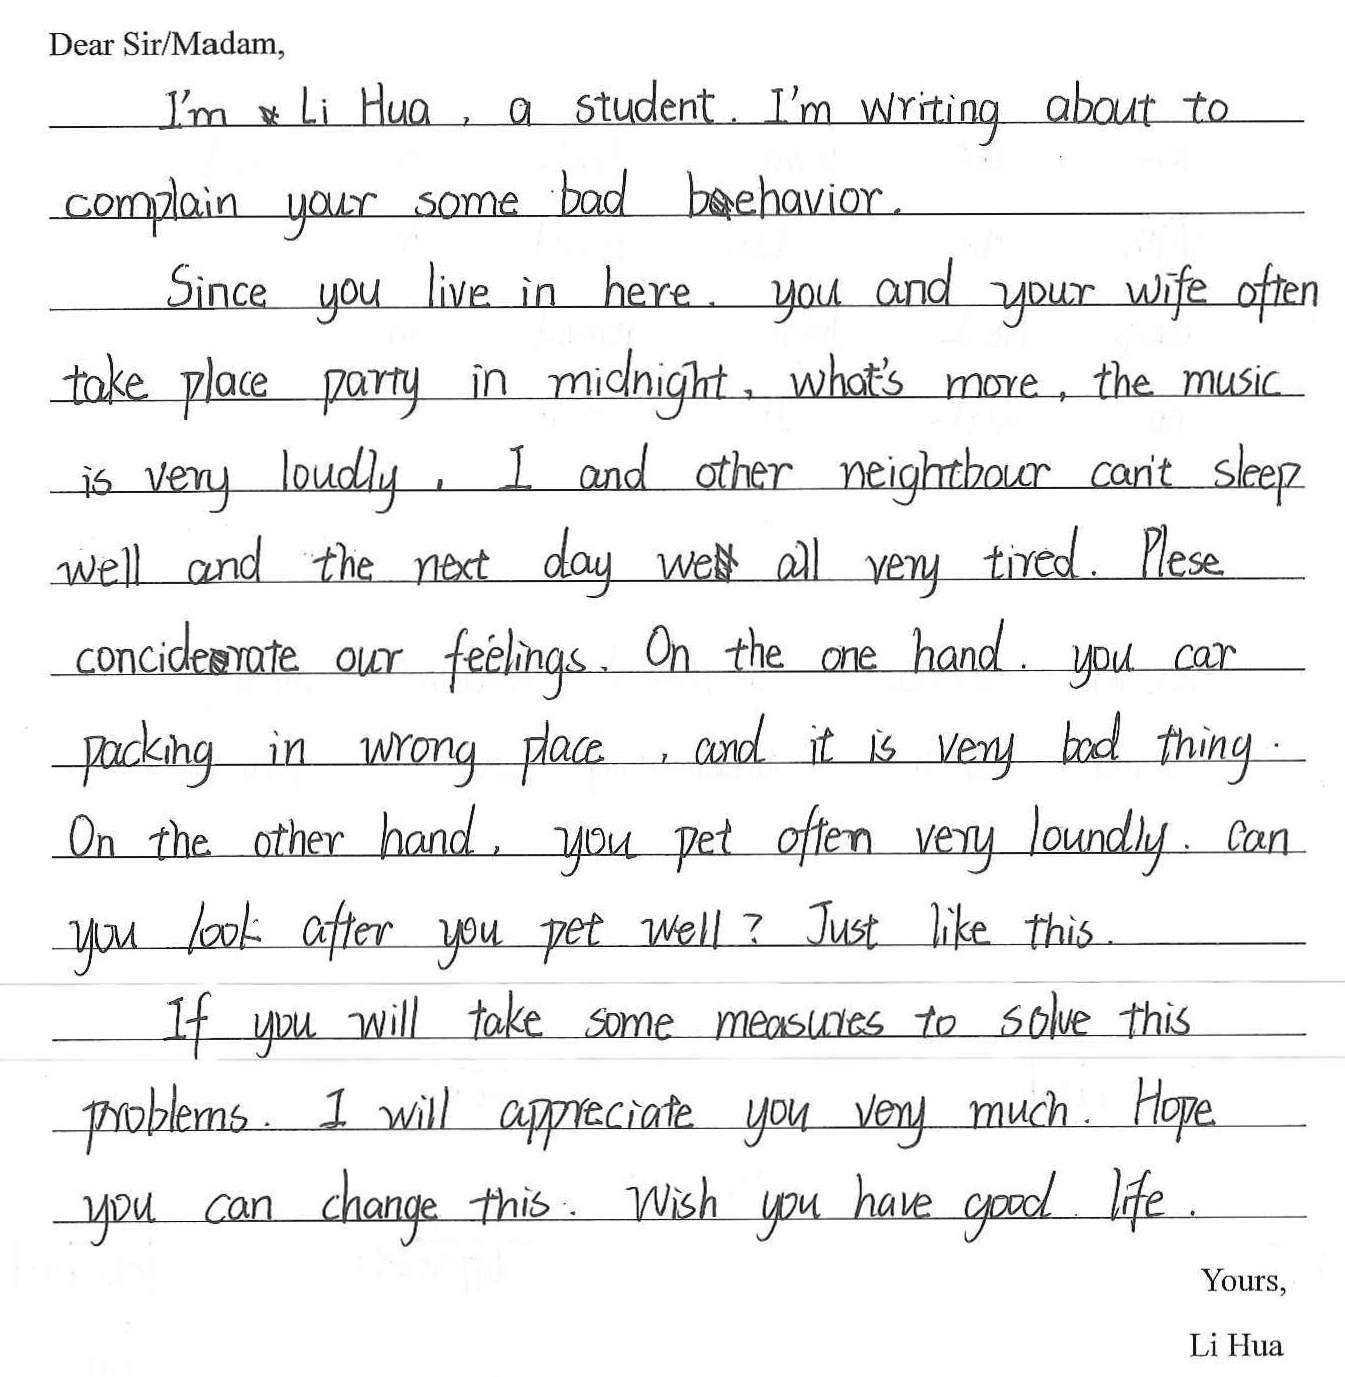 Dear Sir/Madam,
I'm Li Hua, a student. I'm writing about to
complain your some bad behavior.
Since you live in here. you and your wife often
take place party in midnight, what's more, the music
is very loudly. I and other neightbour can't sleep
well and the next day we all very tired. Plese
conciderate our feelings. On the one hand. you car
packing in wrong place, and it is very bad thing.
On the other hand, you pet often very loundly. Can
you look after you pet well? Just like this.
If you will take some measures to solve this
problems. I will appreciate you very much. Hope
you can change this. Wish you have good life.
Yours,
Li Hua